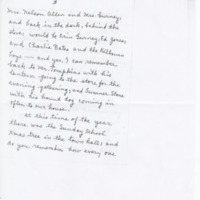 Mrs. Nelson Allen and Mrs. Gurney;
and back in the back, behind the
stove; would be Erin Gurney, Ed Jones
and Charlie Bates and the
boys — and yes, I can remember
back to Mr. Tompkins with his
lantern going to the store for the
evening gathering, and Sumner Stone
with his hand bag coming in
often to our house.
at this time of the year
there was the Sunday School
Xmas tree in the town hall; and
do you remember how every one